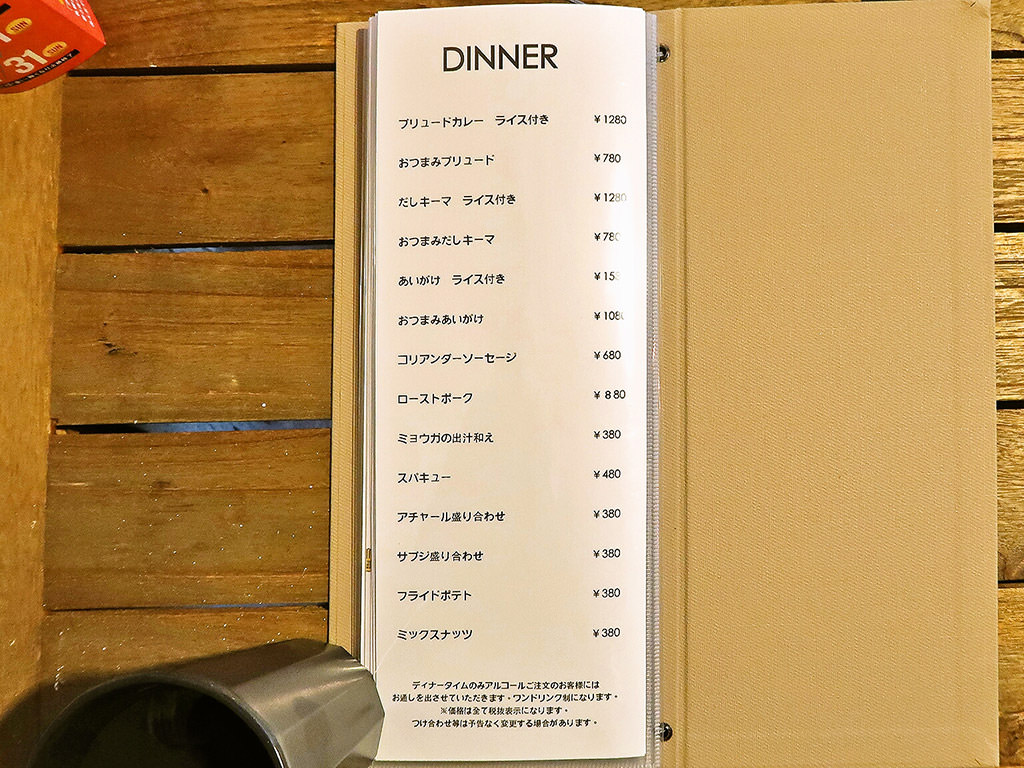 31 SUN
DINNER
ブリュードカレー　ライス付き ¥1280
おつまみブリュード ¥780
だしキーマ　ライス付き ¥1280
おつまみだしキーマ ¥780
あいがけ　ライス付き
おつまみあいがけ ¥1080
コリアンダーソーセージ ¥680
ローストポーク ¥880
ミョウガの出汁和え ¥380
スパキュー ¥480
アチャール盛り合わせ ¥380
サブジ盛り合わせ ¥380
フライドポテト ¥380
ミックスナッツ ¥380
ディナータイムのみアルコールご注文のお客様には
お通しを出させていただきます。ワンドリンク制になります。
※価格は全て税抜表示になります。
つけ合わせ等は予告なく変更する場合があります。